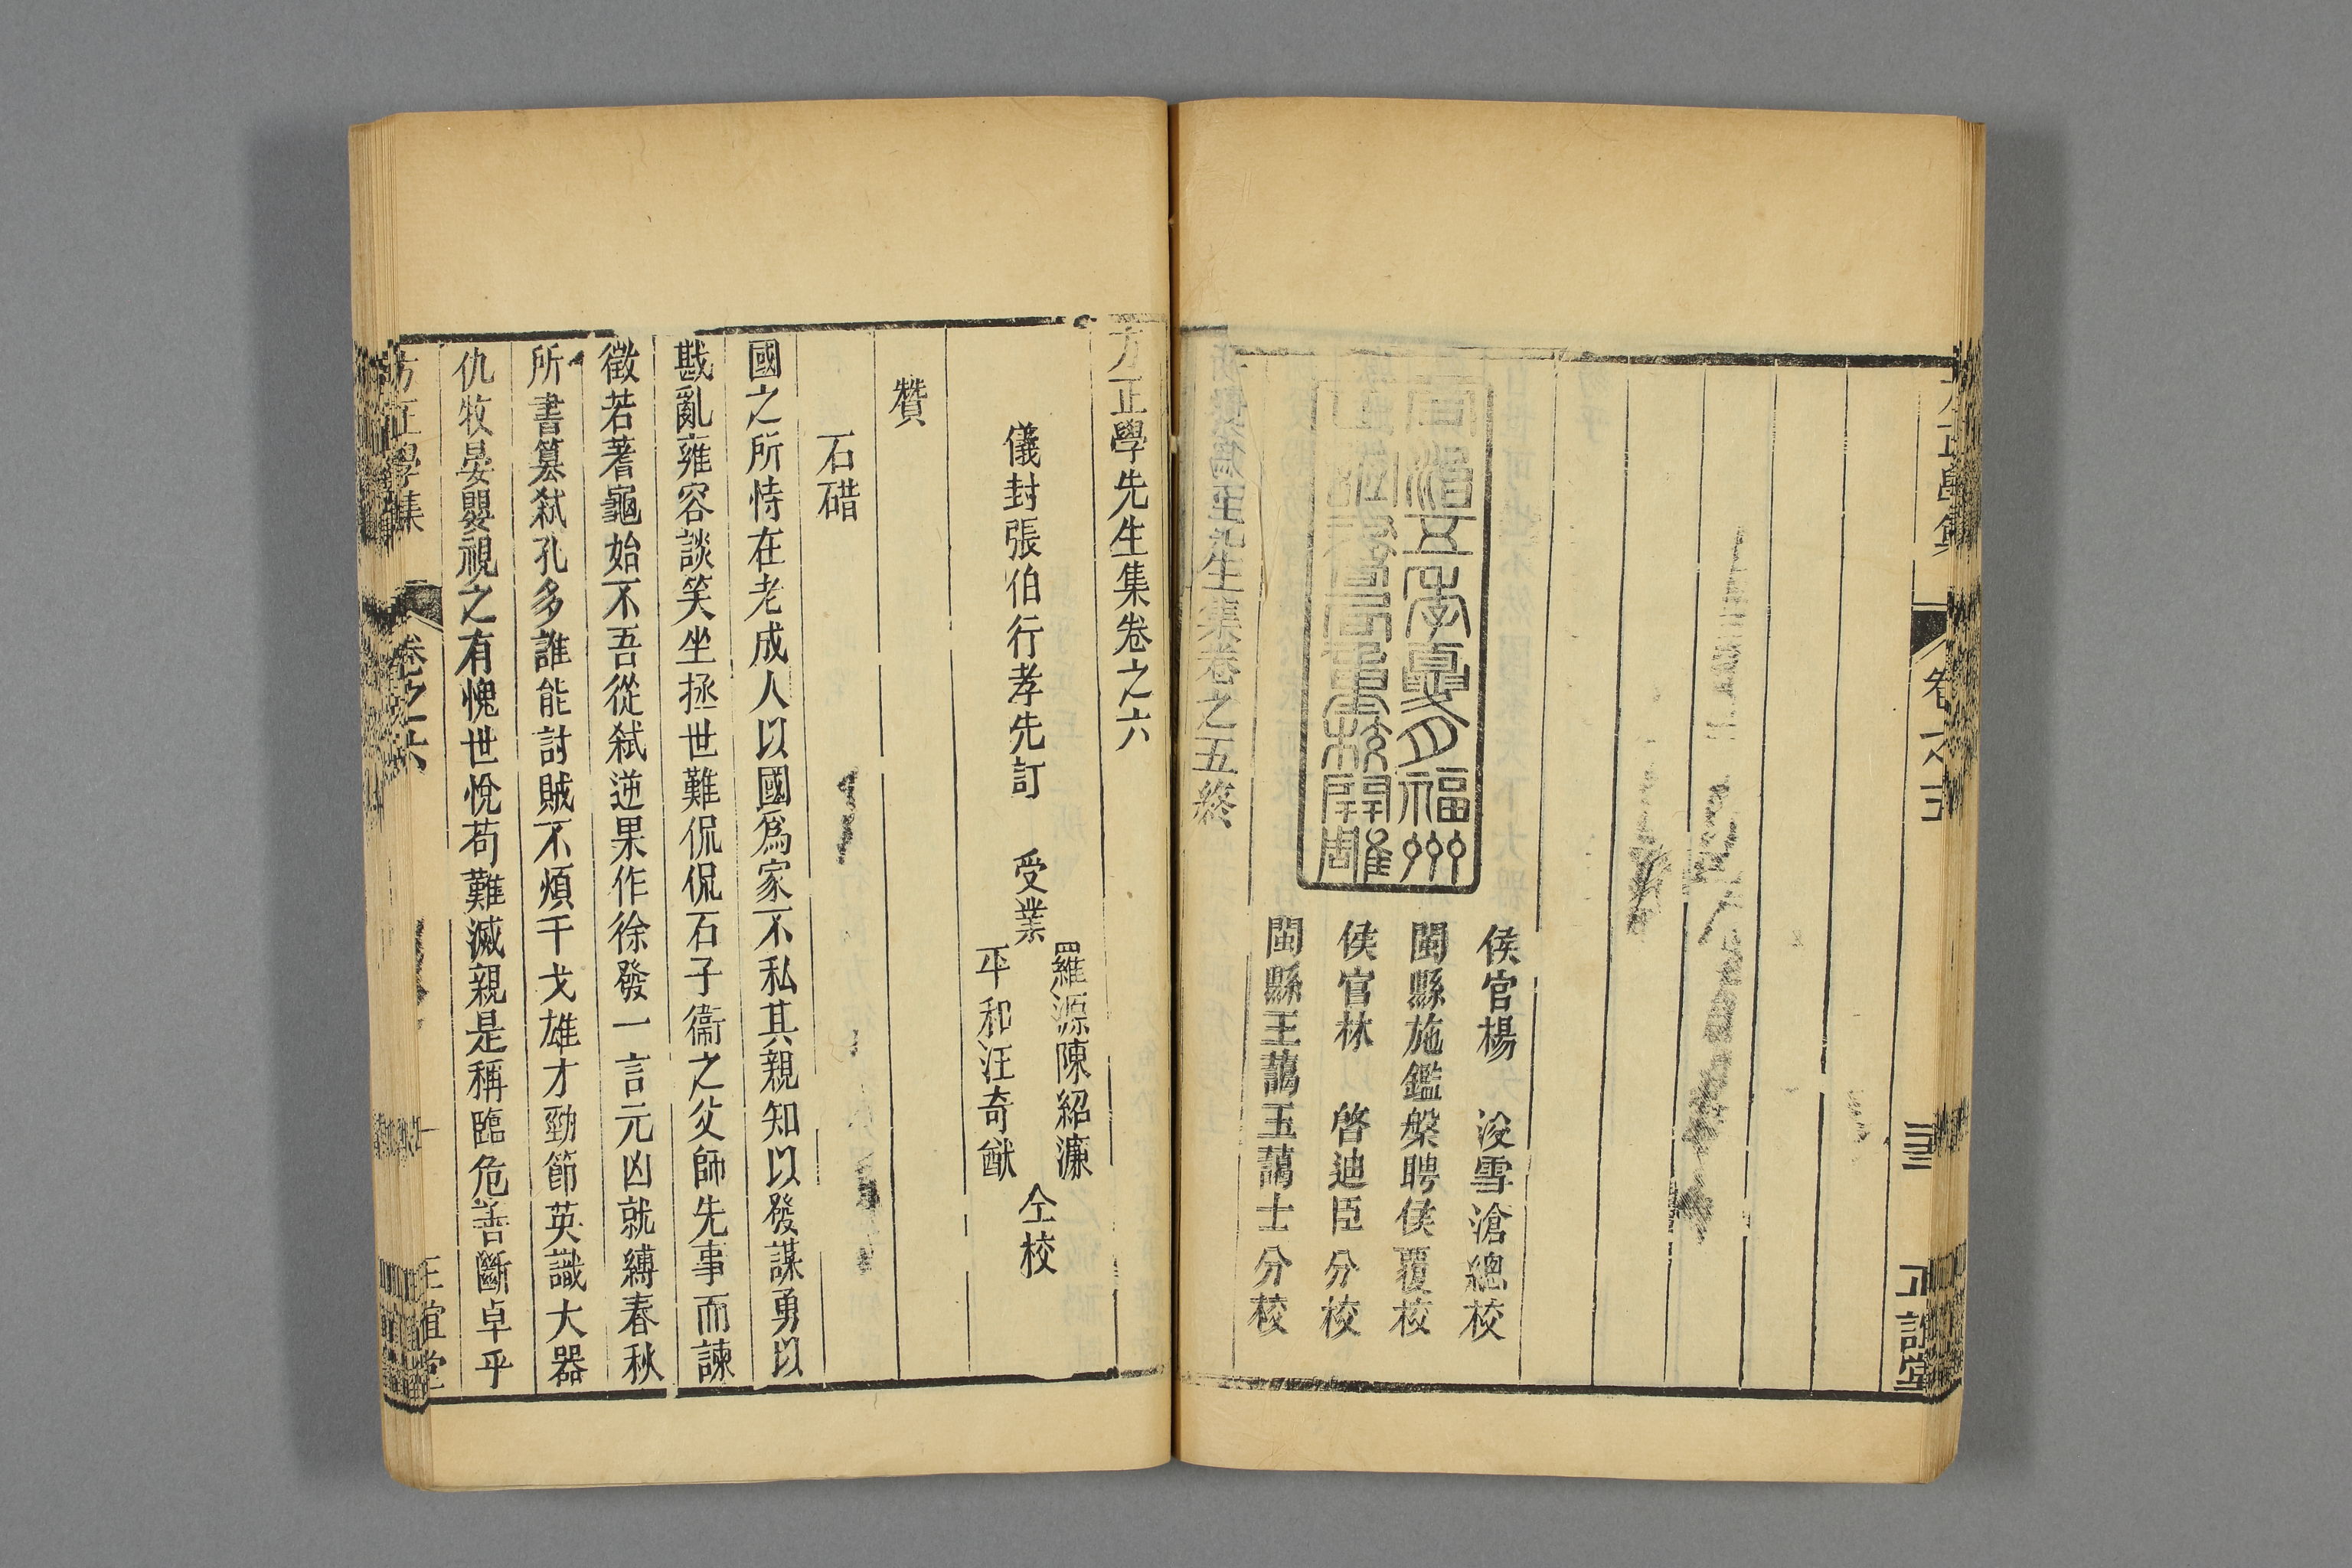 方正學集
卷之五
正誼堂
侯官楊 浚雪滄總校
閩縣施鑑槃聘侯覆校
侯官林 啓迪臣分校
閩縣王藹玉藹士分校
福州
書
校開雕
先生集卷之五終
方正學先生集卷之六
儀封張伯行孝先訂 受業
羅源陳紹濂
平和汪奇猷
仝校
贊
石碏
國之所恃在老成人以國爲家不私其親知以發謀勇以
戡亂雍容談笑坐拯世難侃侃石子衞之父師先事而諫
徵若蓍龜始不吾從弑逆果作徐發一言元凶就縛春秋
所書簒弑孔多誰能討賊不煩干戈雄才勁節英識大器
仇牧晏嬰視之有愧世悅苟難滅親是稱臨危善斷卓乎
方正學集
卷之六
正誼堂